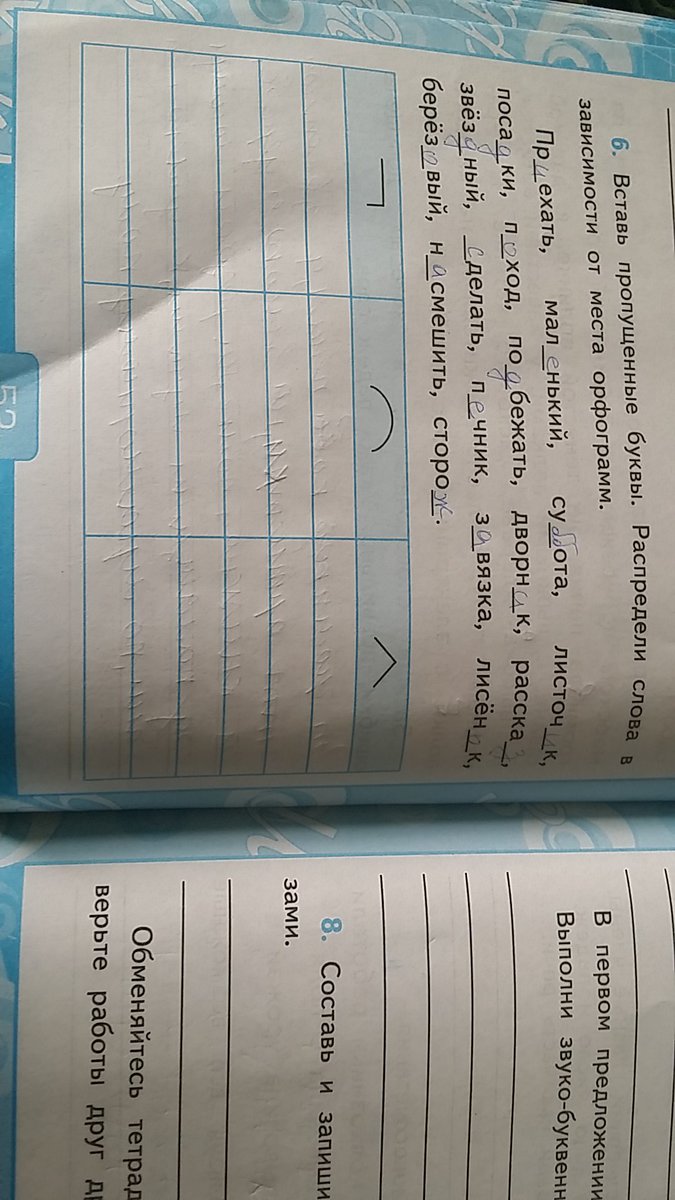 6. Вставь пропущенные буквы. Распредели слова в
зависимости от места орфограмм.
Приехать, маленький, суббота, листочик,
посадки, поход, подбежать, дворник, рассказ,
звёздный, сделать, печник, завязка, лисёнок,
берёзовый, насмешить, сторож.
52
В первом предложении
Выполни звуко-буквенн
8. Составь и запиши
зами.
Обменяйтесь тетрад
верьте работы друг др